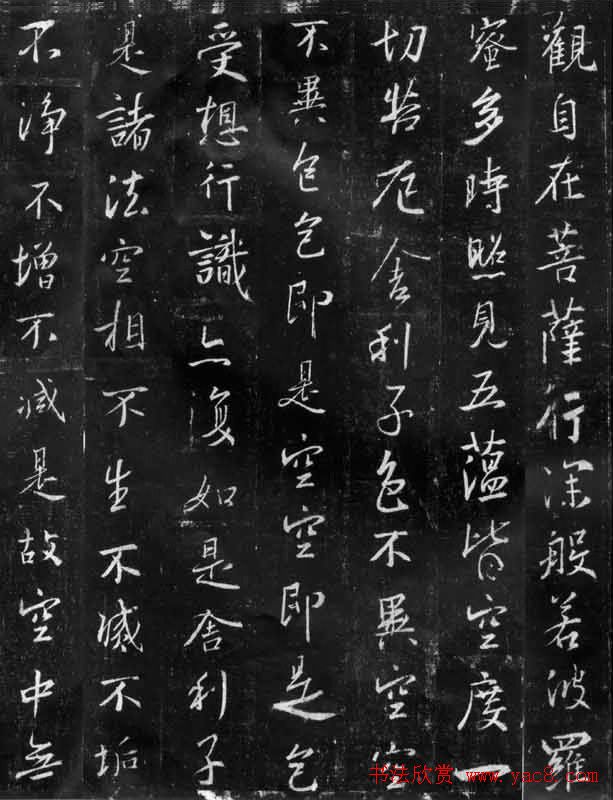 觀自在菩薩行深般若波羅
蜜多時照見五蘊皆空度一
切苦厄舍利子色不異空空
不異色色即是空空即是色
受想行識亦復如是舍利子
是諸法空相不生不滅不垢
不淨不增不減是故空中無
书法欣赏 www.yac8.com